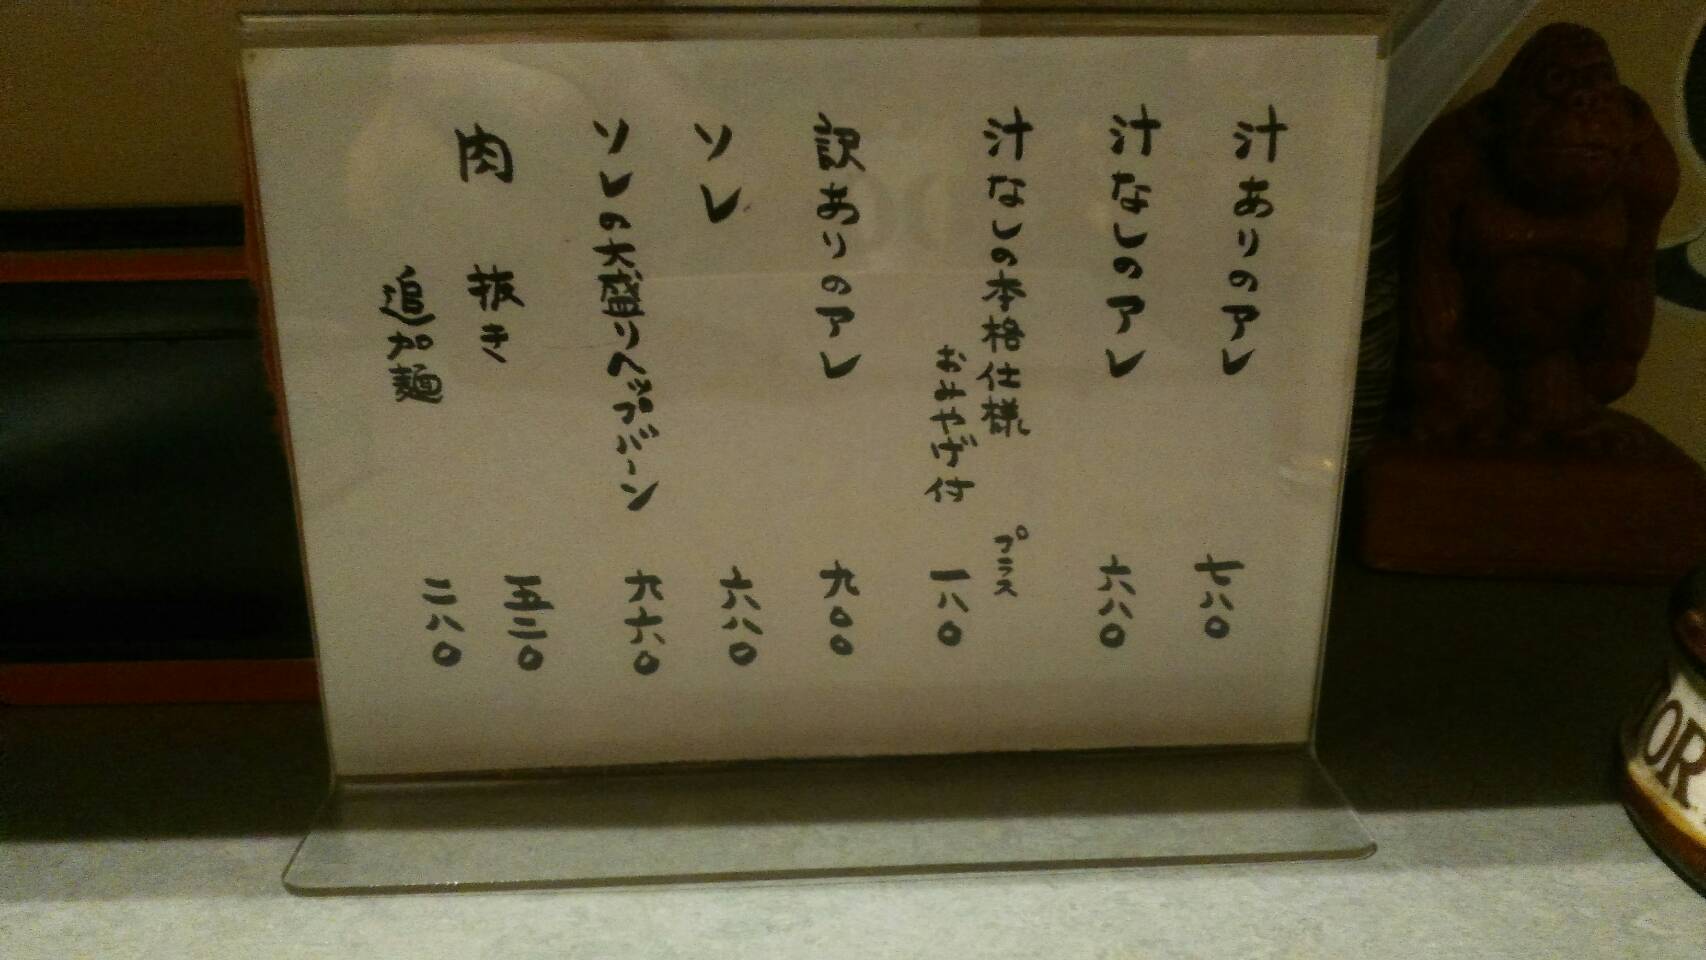 汁ありのアレ 七八〇
汁なしのアレ 六八〇
汁なしの本格仕様 プラス
おまやげ付 一八〇
訳ありのアレ 九〇〇
ソレ 六八〇
ソレの大盛りヘップバーン 九六〇
肉 抜き 五三〇
追加麺 二八〇
OR